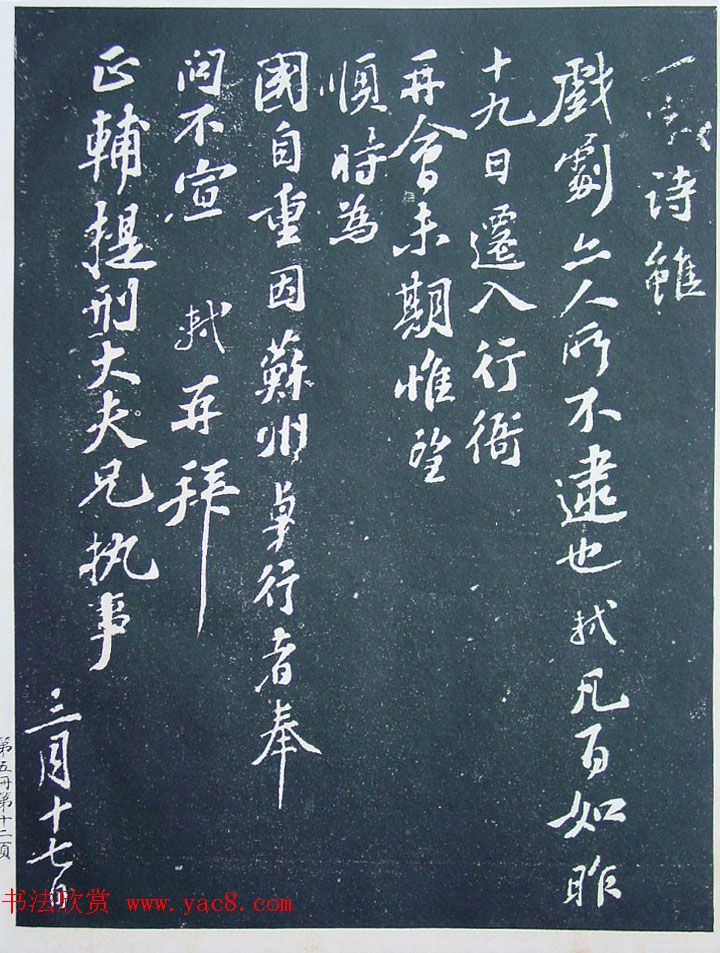 一字詩雖
戲劇亦人所不逮也軾凡百如昨
十九日遷入行衙
再會未期惟望
順時為
國自重因蘇州卓行者奉
問不宣 軾再拜
正輔提刑大夫兄执事
三月十七日
第五冊第十二頁
书法欣赏 www.yac8.com